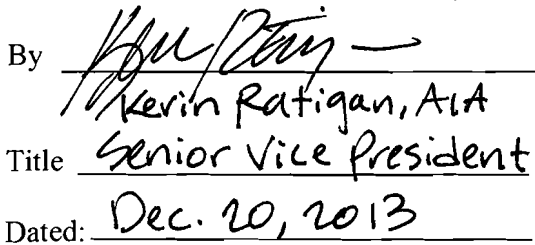 By
Kevin Ratigan, AIA
Title Senior Vice President
Dated: Dec. 20, 2013